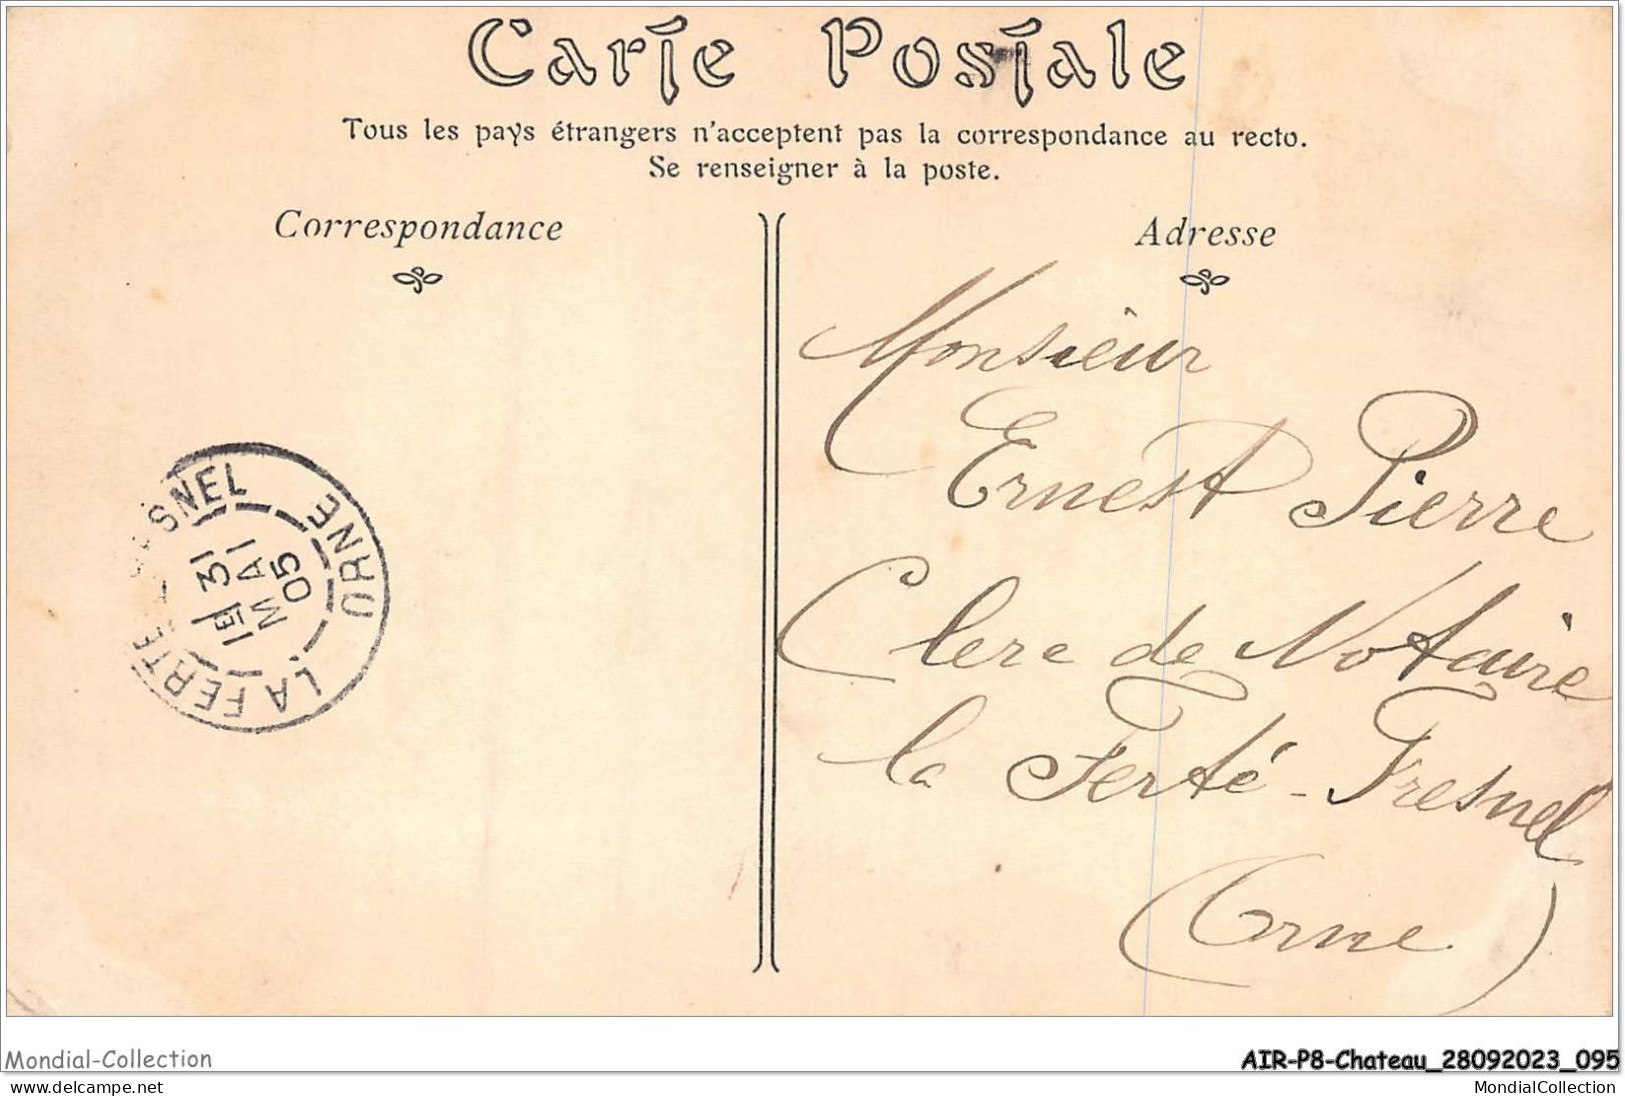 Carte Postale
Tous les pays étrangers n'acceptent pas la correspondance au recto.
Se renseigner à la poste.
Correspondance
Adresse
Monsieur
Ernest Pierre
Clerc de Notaire
la Ferté-Fresnel
(Orne)
LA FERTÉ SNEL ORNE
31
MAI
05
Mondial-Collection
AIR-P8-Chateau_28092023_095
delcampe.net
MondialCollection